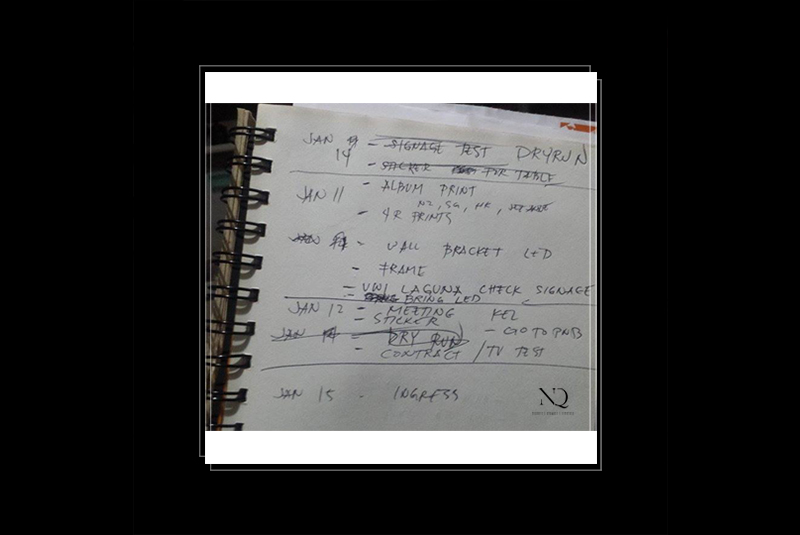 JAN
14 - SIGNAGE TEST DRYRUN
- STICKER FOR TABLE
JAN 11 - ALBUM PRINT
NZ, SG, HK,
- 4R PRINTS
JAN - WALL BRACKET LED
- FRAME
= UWI LAGUNA CHECK SIGNAGE
BRING LED
JAN 12 - MEETING KEL
- STICKER
JAN 14 = DRY RUN - GO TO PNB
- CONTRACT / TV TEST
JAN 15 - INGRESS
NQ